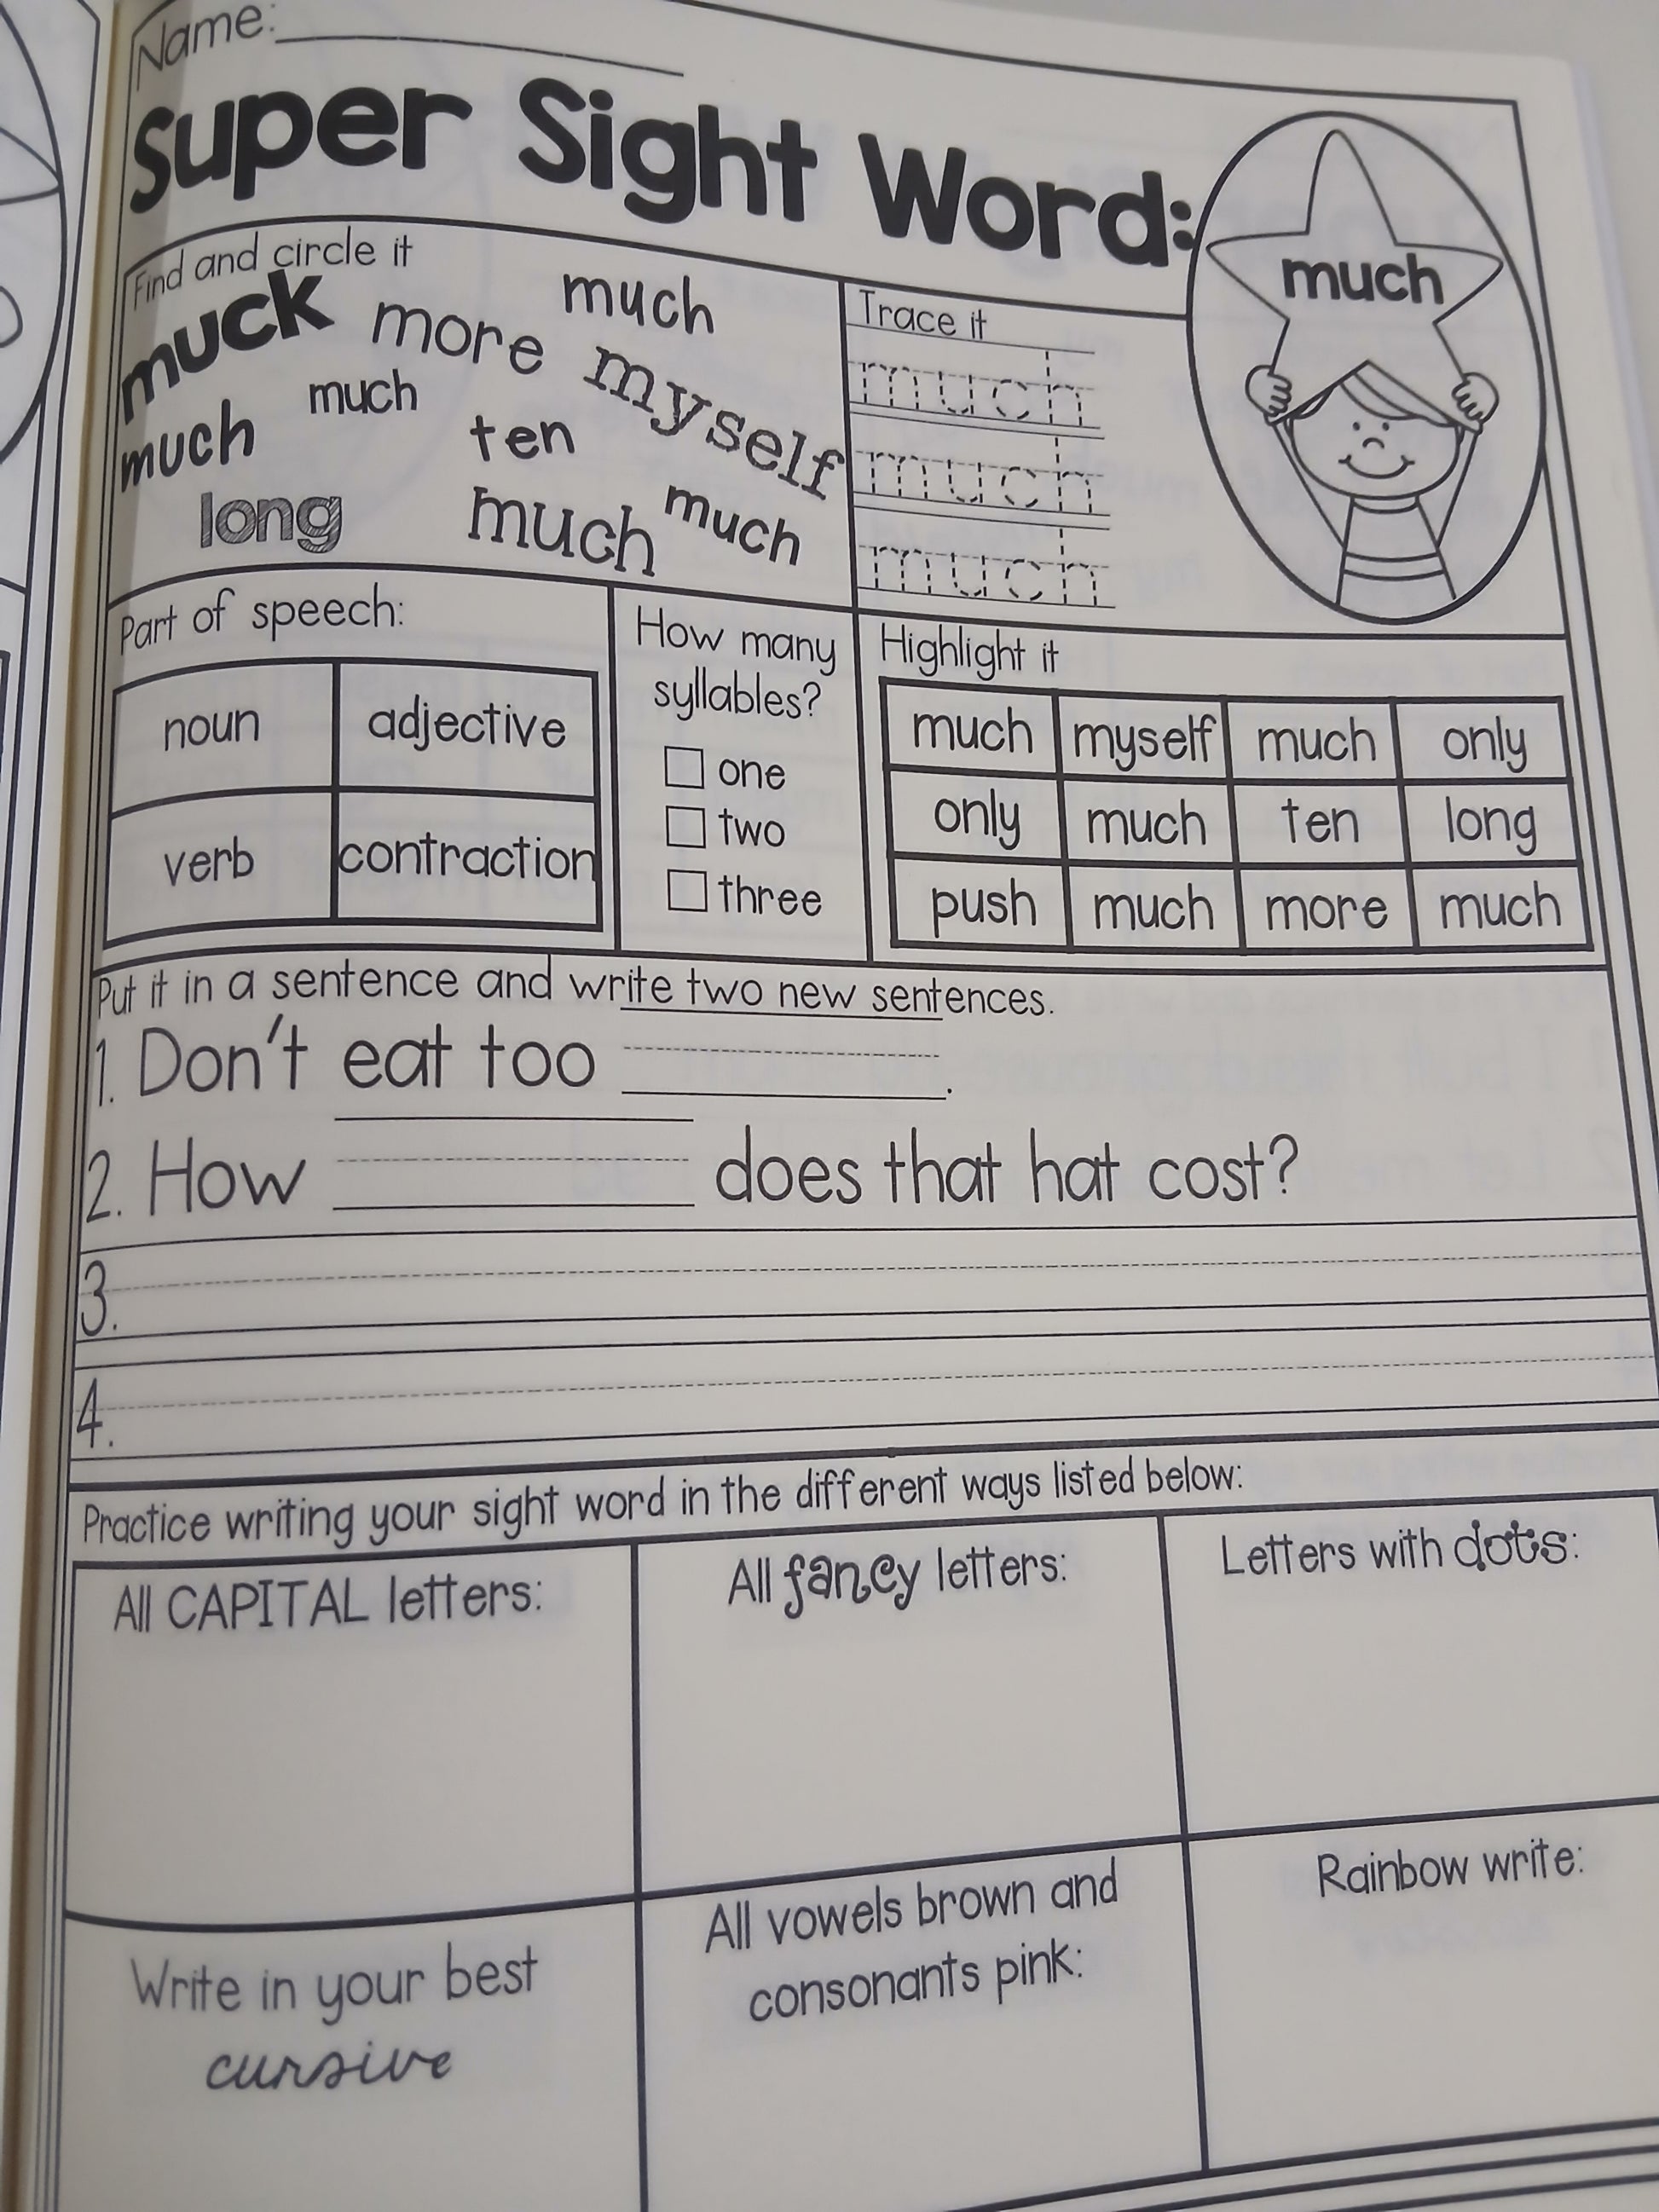 Name:
Super Sight Word:
much
Find and circle it
muck more much
myself
much much ten
long much much
Trace it
much
much
much
Part of speech:
noun adjective
verb contraction
How many
syllables?
one
two
three
Highlight it
much myself much only
only much ten long
push much more much
Put it in a sentence and write two new sentences.
1. Don't eat too .
2. How does that hat cost?
3.
4.
Practice writing your sight word in the different ways listed below:
All CAPITAL letters:
All fancy letters:
Letters with dots:
Write in your best
cursive
All vowels brown and
consonants pink:
Rainbow write: